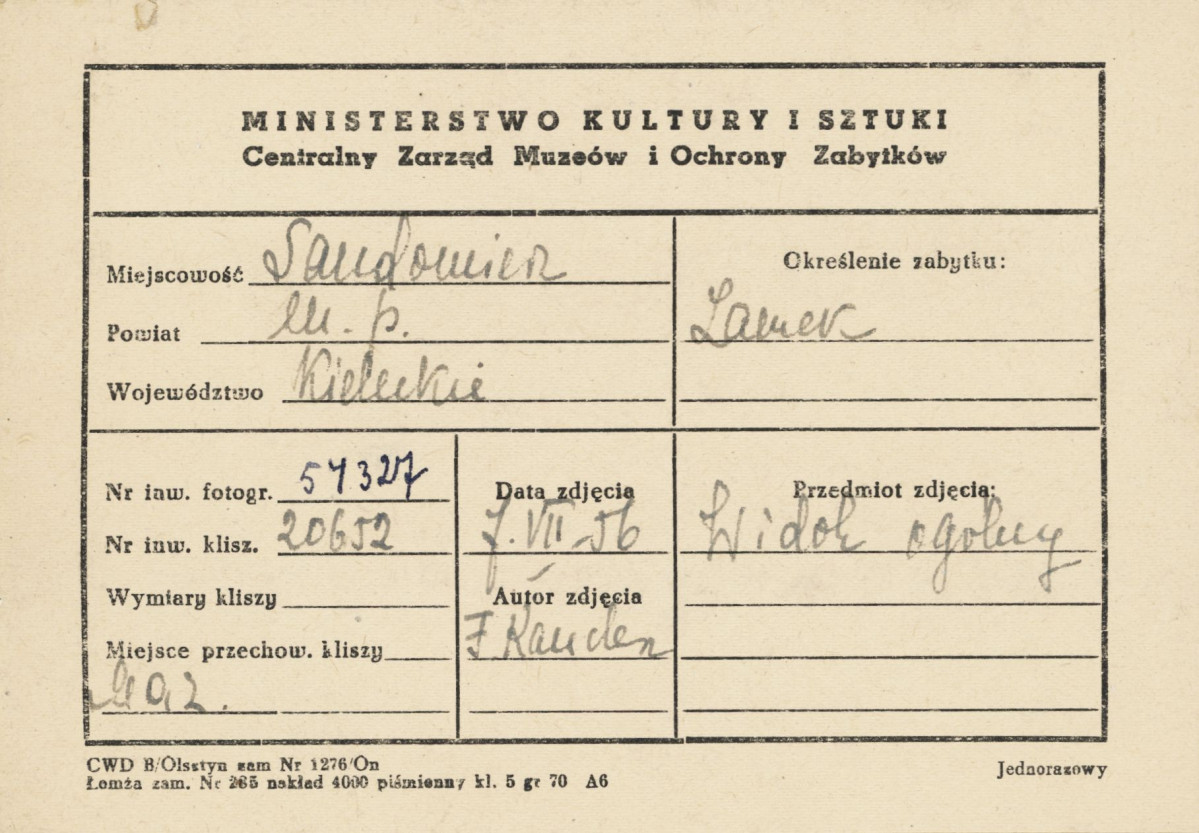 MINISTERSTWO KULTURY I SZTUKI
Centralny Zarząd Muzeów i Ochrony Zabytków
Miejscowość Sandomierz
Powiat m. p.
Województwo Kieleckie
Określenie zabytku:
Zamek
Nr inw. fotogr. 57327
Nr inw. klisz. 20652
Wymiary kliszy
Miejsce przechow. kliszy
Data zdjęcia
7.VII-56
Autor zdjęcia
Przedmiot zdjęcia:
Widok ogólny
CWD B/Olsztyn zam Nr 1276/On
Łomża zam. Nr 265 nakład 4000 piśmienny kl. 5 gr 70 A6
Jednorazowy